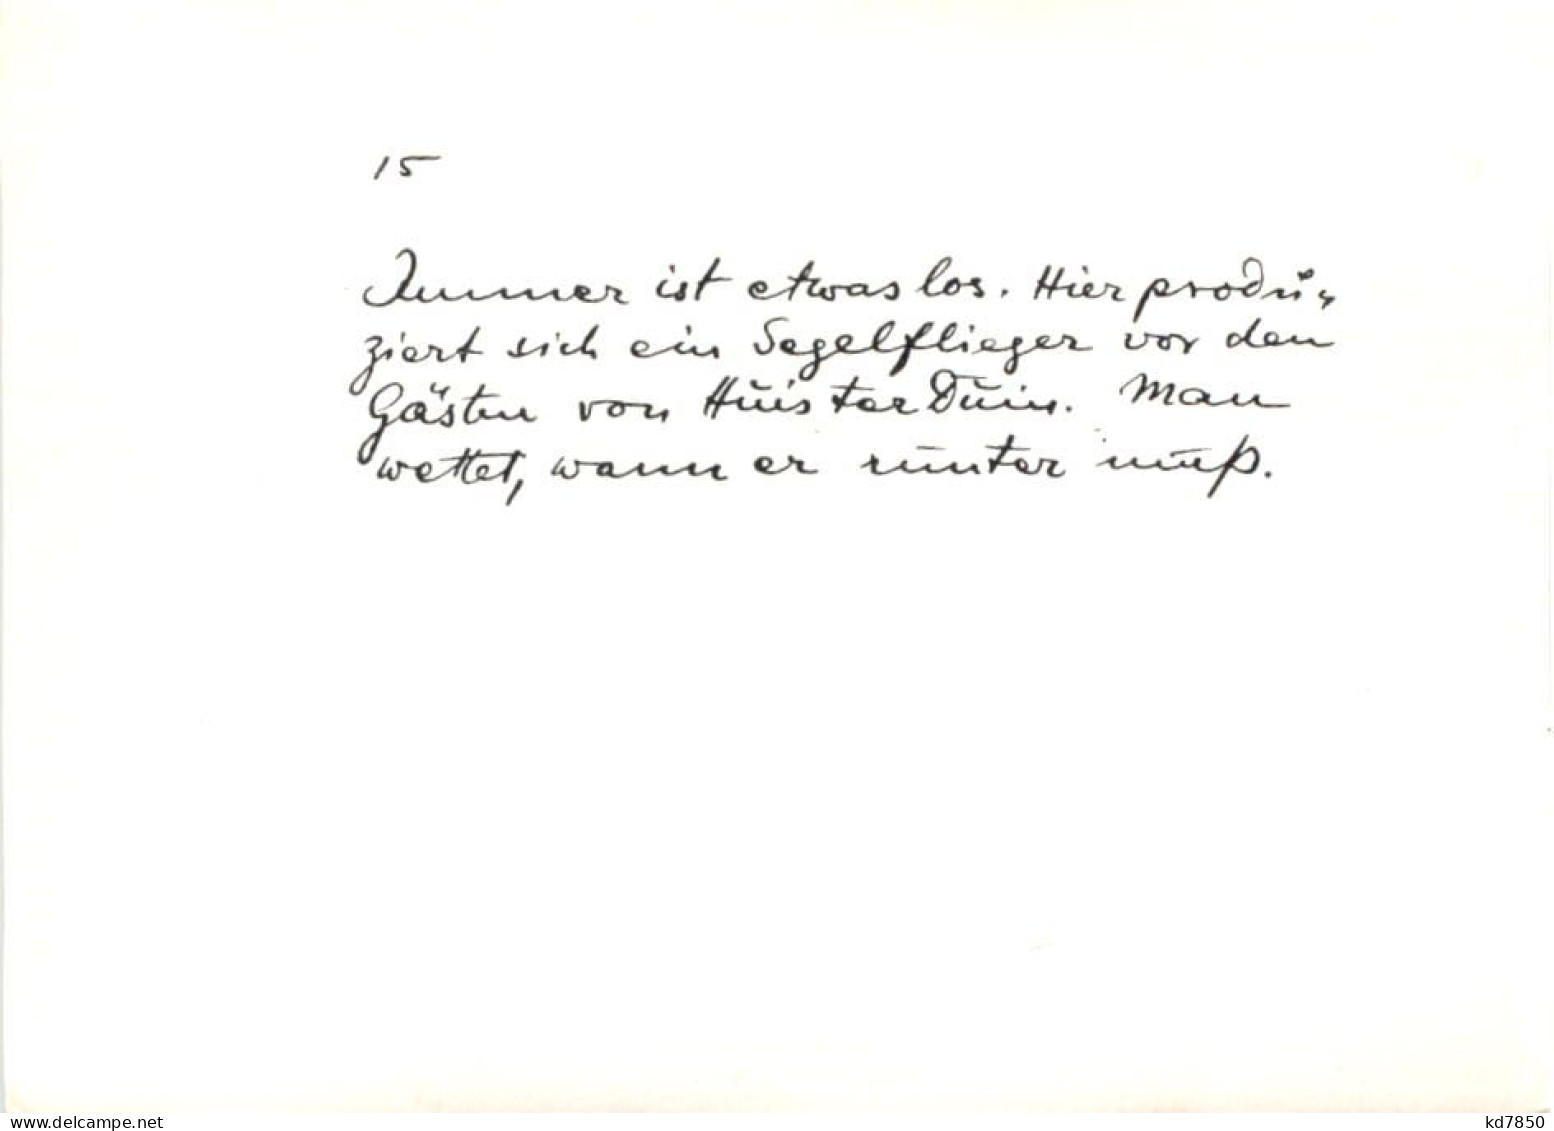 15
Immer ist etwas los. Hier produ-
ziert sich ein Segelflieger vor den
Gästen von Huis ter Duin. Man
wettet, wann er runter muß.
www.delcampe.net
kd7850